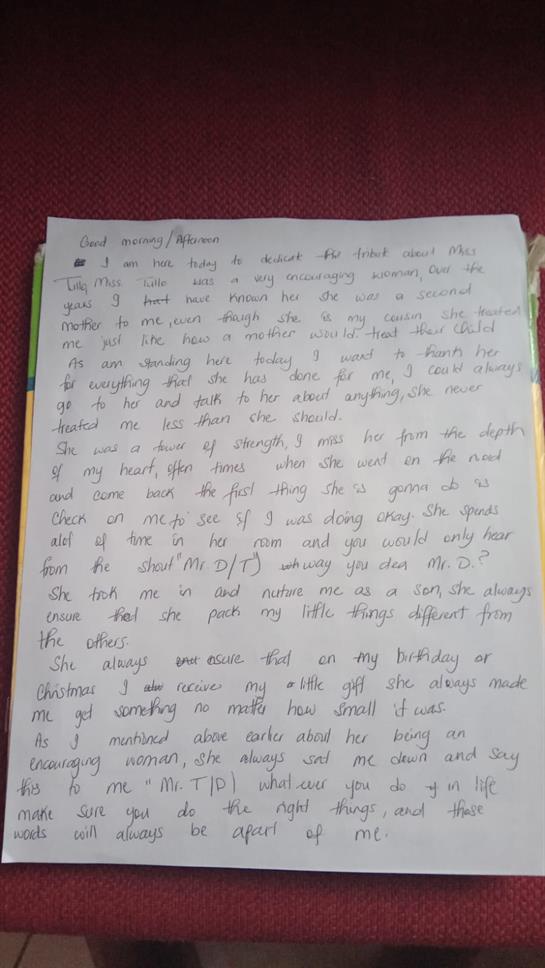 Good morning/Afternoon
I am here today to dedicate this tribut about Miss
Tillo, Miss. Tillo was a very encouraging woman, Over the
years I have known her she was a second
mother to me, even though she is my cousin she treated
me just like how a mother would. treat their child
As am standing here today I want to thank her
for everything that she has done for me, I could always
go to her and talk to her about anything, she never
treated me less than she should.
She was a tower of strength, I miss her from the depth
of my heart, often times when she went on the road
and come back the first thing she is gonna do is
check on me to see if I was doing okay. She spends
alot of time in her room and you would only hear
from the shout "Mr. D/T") way you dea Mr. D.?
She took me in and nuture me as a son, she always
ensure that she pack my little things different from
the others.
She always ensure that on my birthday or
Christmas I receive my little gift she always made
me get something no matter how small it was.
As I mentioned above earlier about her being an
encouraging woman, she always sat me down and say
this to me "Mr. T/D) what ever you do in life
make sure you do the right things, and those
words will always be apart of me.